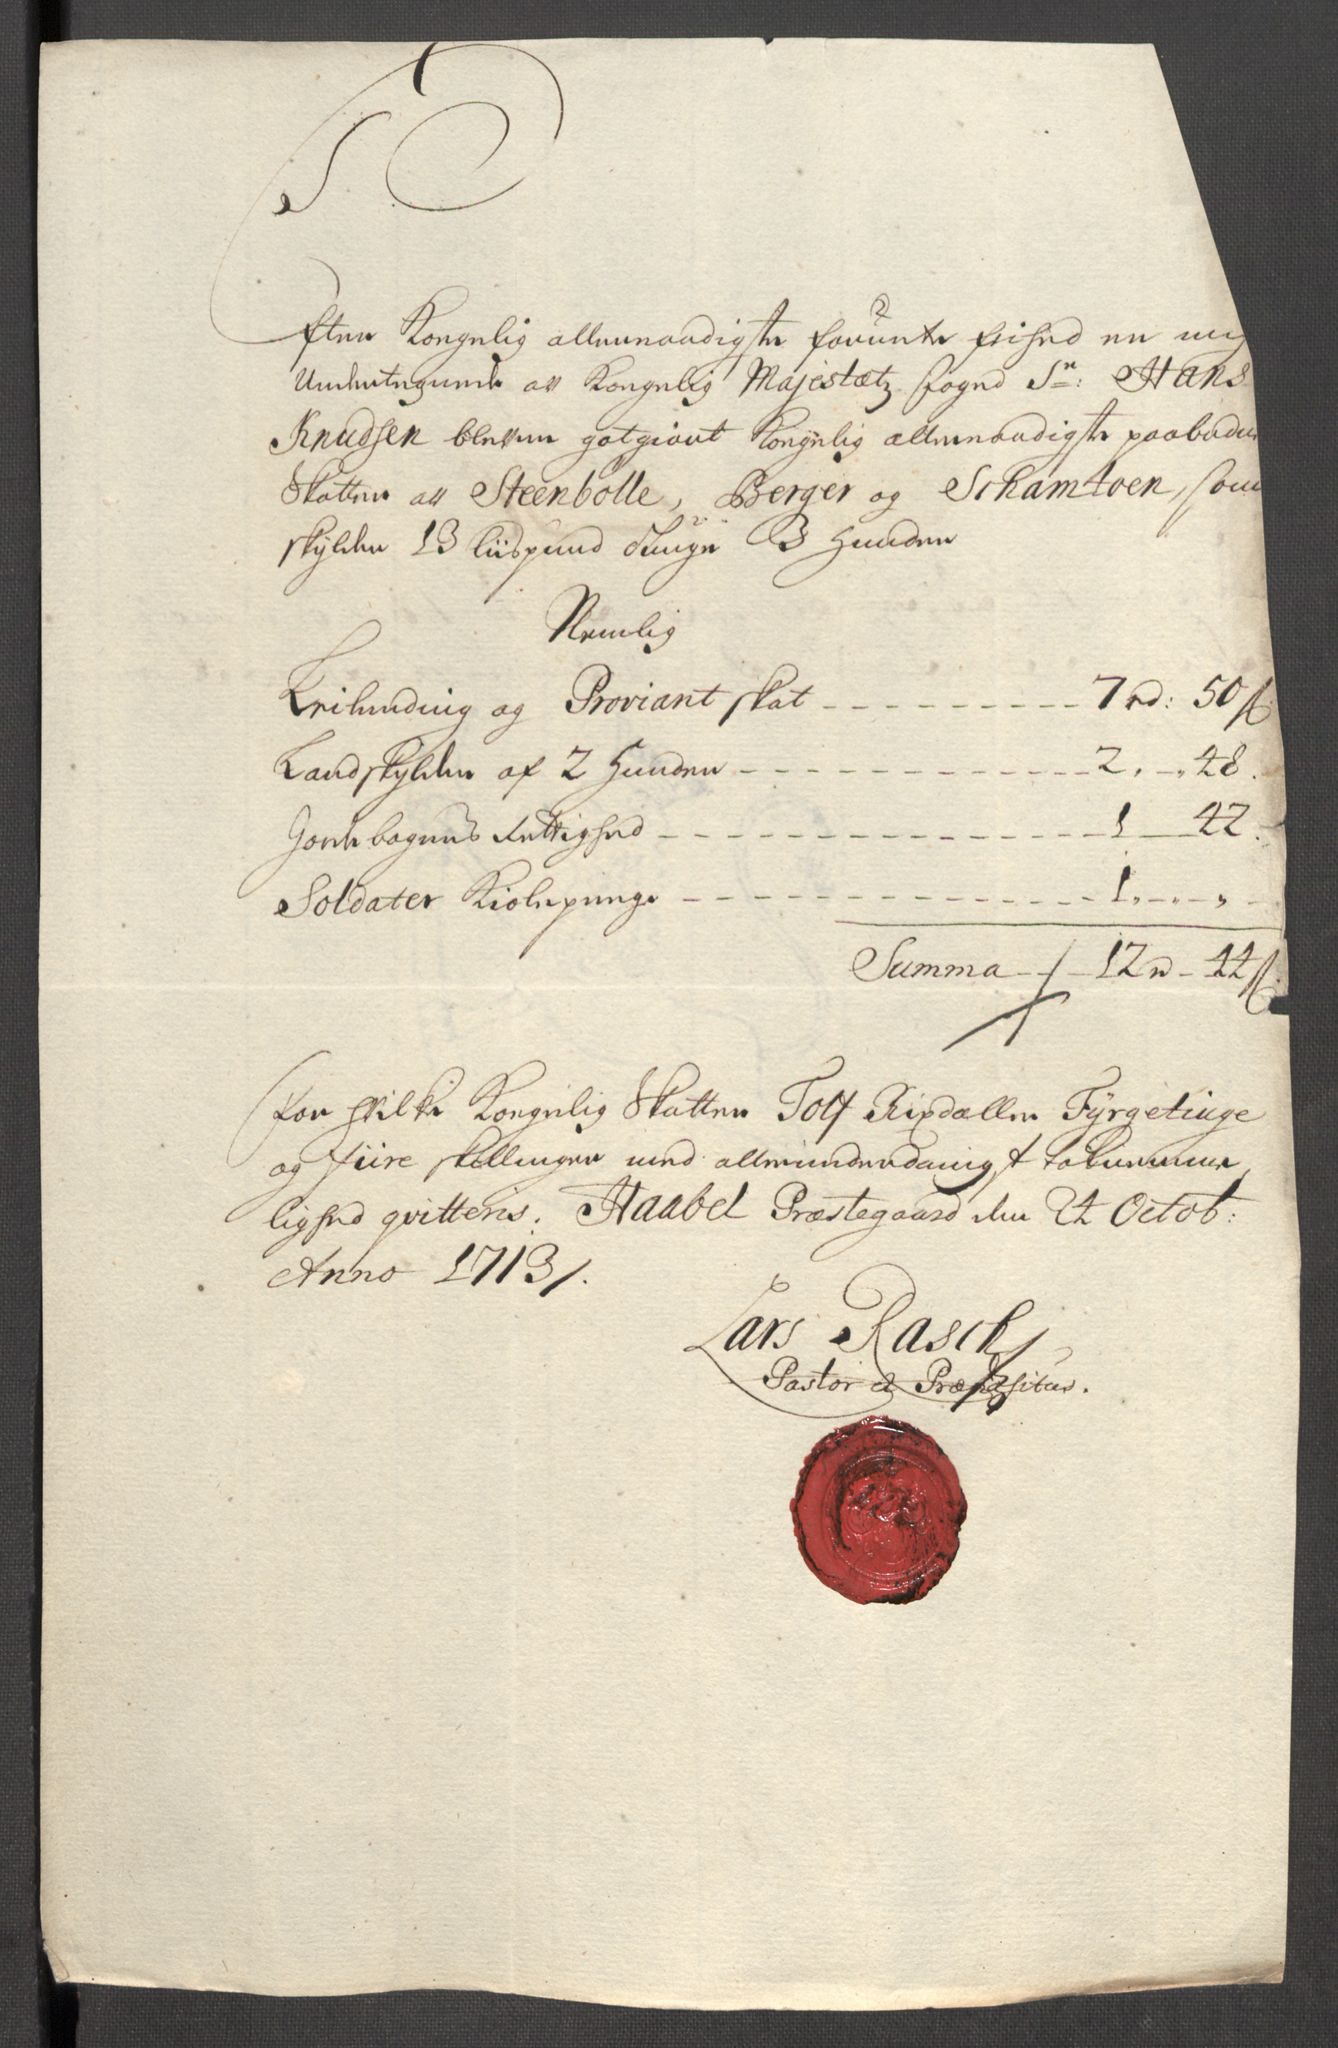 Efter Kongelig allernaadigste forunte frihed er mig
Underteignede av Kongelig Majestætz foged Sr: Hans
Knudsen bleven gotgiort Kongelig allernaadigste paabudne
Skatter av Steenbolle, Berger og Schamtven, som
skylder 13 liispund Tunge 3 Huuder
Nemlig
Leilending og Proviant skat 7 rd: 50 s
Landskylden af 2 Huuder 2 " 48.
Jordebogens Rettighed 1 42.
Soldater Kiolepenge 1 " "
Summa 12 rd 44 s
For hvilke Kongelig Skatter Tolf Rixdaller Fyrgetiuge
og fiire skillinger med allerunderdanigst
lighed qvitteris. Haabel Præstegaard den 24 Octob:
Anno 1713/.
Lars Rasch
Pastor et Præpositus.